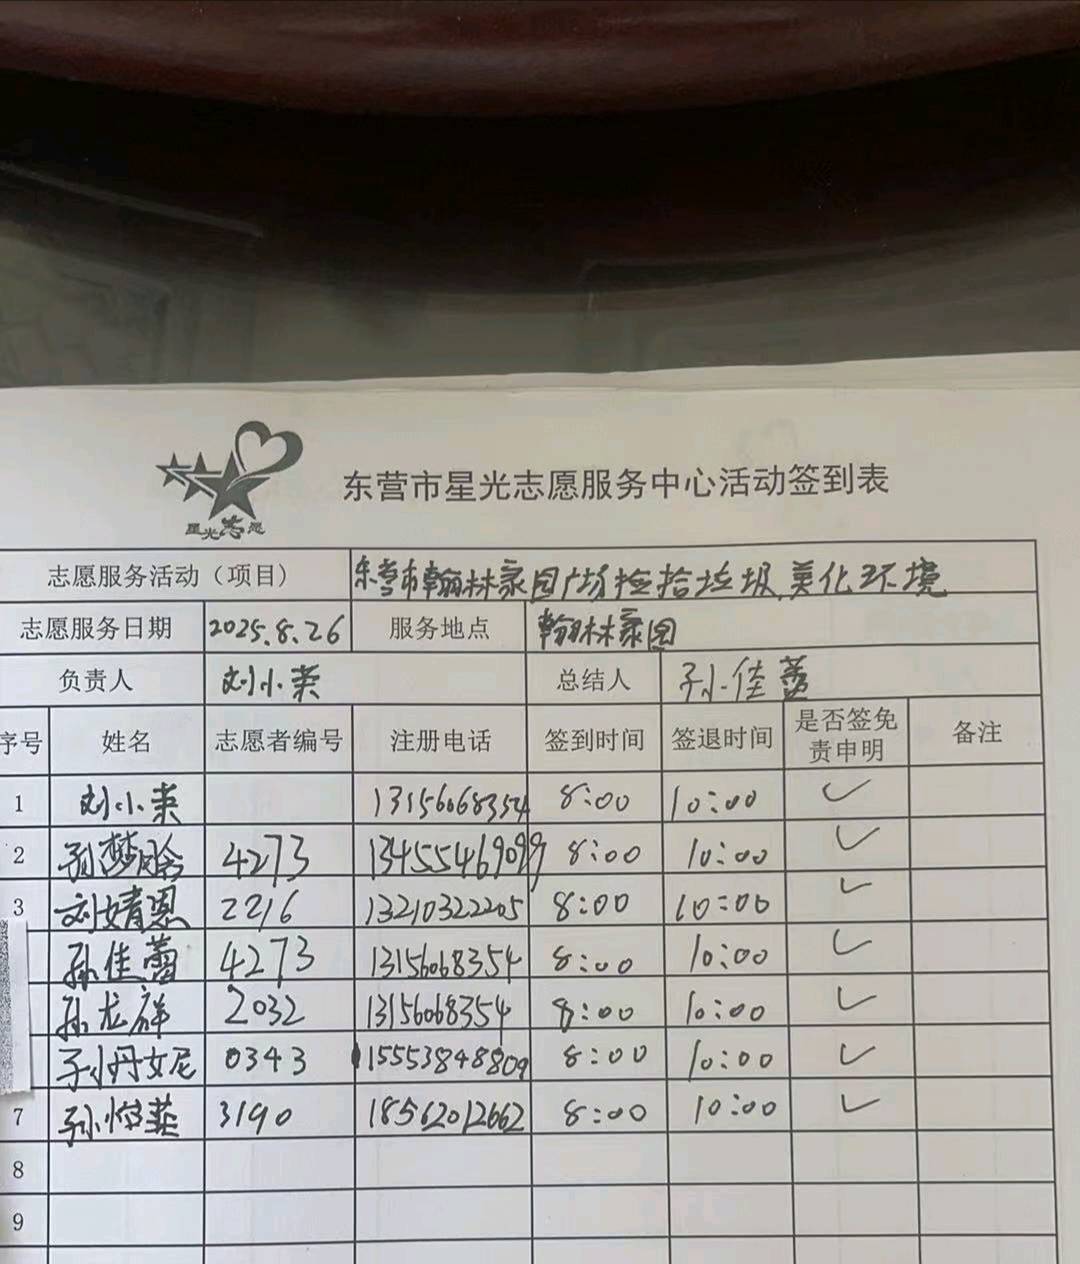 星光志愿
东营市星光志愿服务中心活动签到表
志愿服务活动（项目） 东营市翰林家园广场捡拾垃圾,美化环境
志愿服务日期 2025.8.26 服务地点 翰林家园
负责人 刘小荣 总结人 孙佳蕾
序号 姓名 志愿者编号 注册电话 签到时间 签退时间 是否签免责申明 备注
1 刘小荣 13156068354 8:00 10:00 ✓
2 孙梦晗 4273 13455469099 8:00 10:00 ✓
3 刘婧恩 2216 13210322205 8:00 10:00 ✓
孙佳蕾 4273 13156068354 8:00 10:00 ✓
孙龙祥 2032 13156068354 8:00 10:00 ✓
孙丹妮 0343 15553848809 8:00 10:00 ✓
7 孙菲 3190 18562012662 8:00 10:00 ✓
8
9